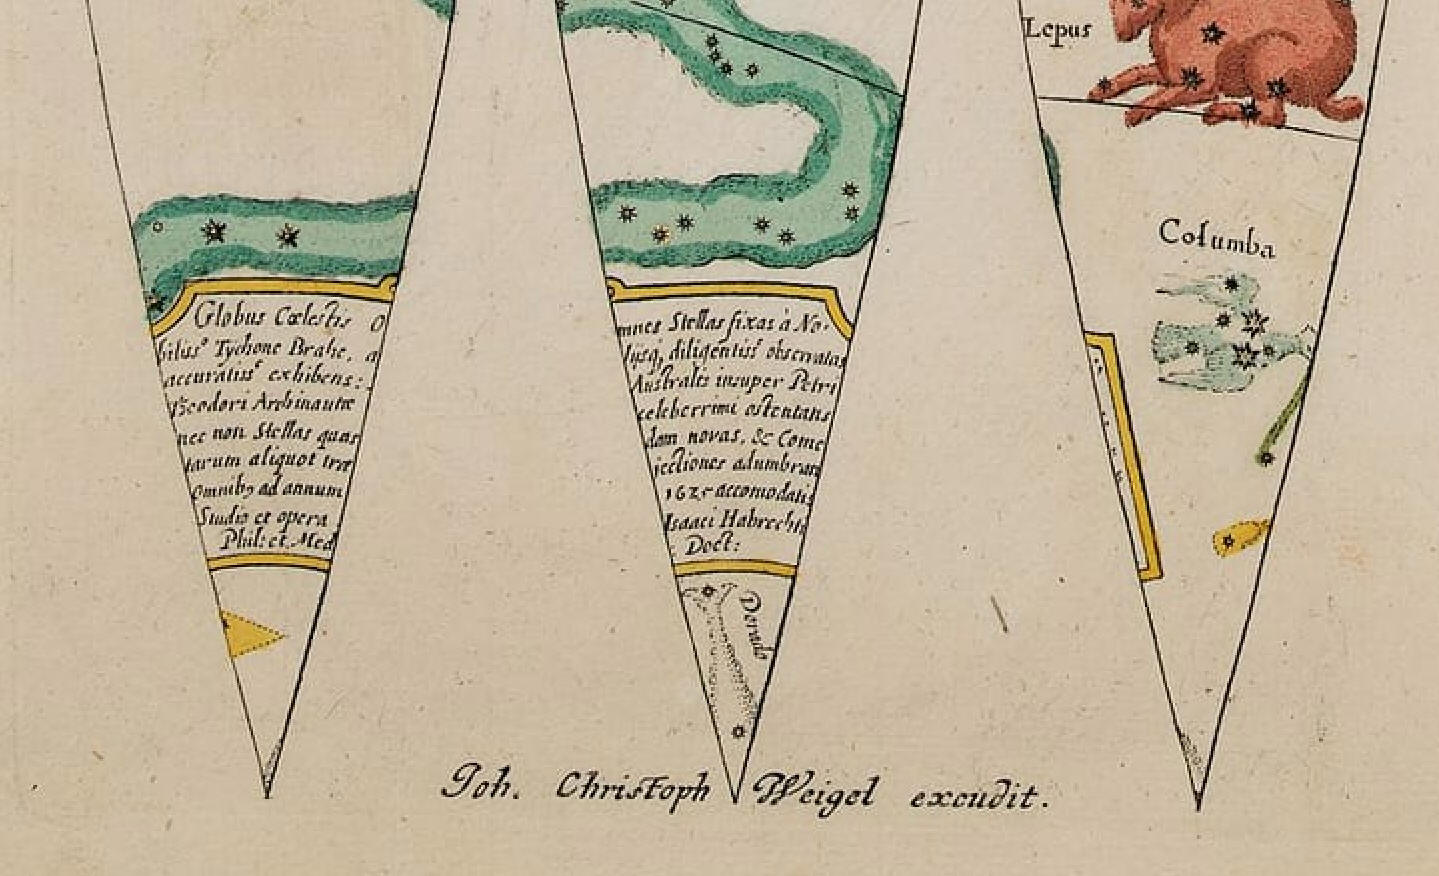 Lepus
Columba
Globus Cœlestis O
biliss° Tychone Brahe, a
accuratiss° exhibens:
Theodori Archinautæ
nec non Stellas quas
tarum aliquot træ
Omnibȝ ad annum
Studio et opera
Phil: et. Med
mnes Stellas fixas à No-
ijsq, diligentiss° observatas
Australis insuper Petri
celeberrimi ostentans
dam novas, & Come
iectiones adumbran
1625 accomodatis
Isaaci Habrechti
Doct:
Dorado
Joh. Christoph Weigel excudit.